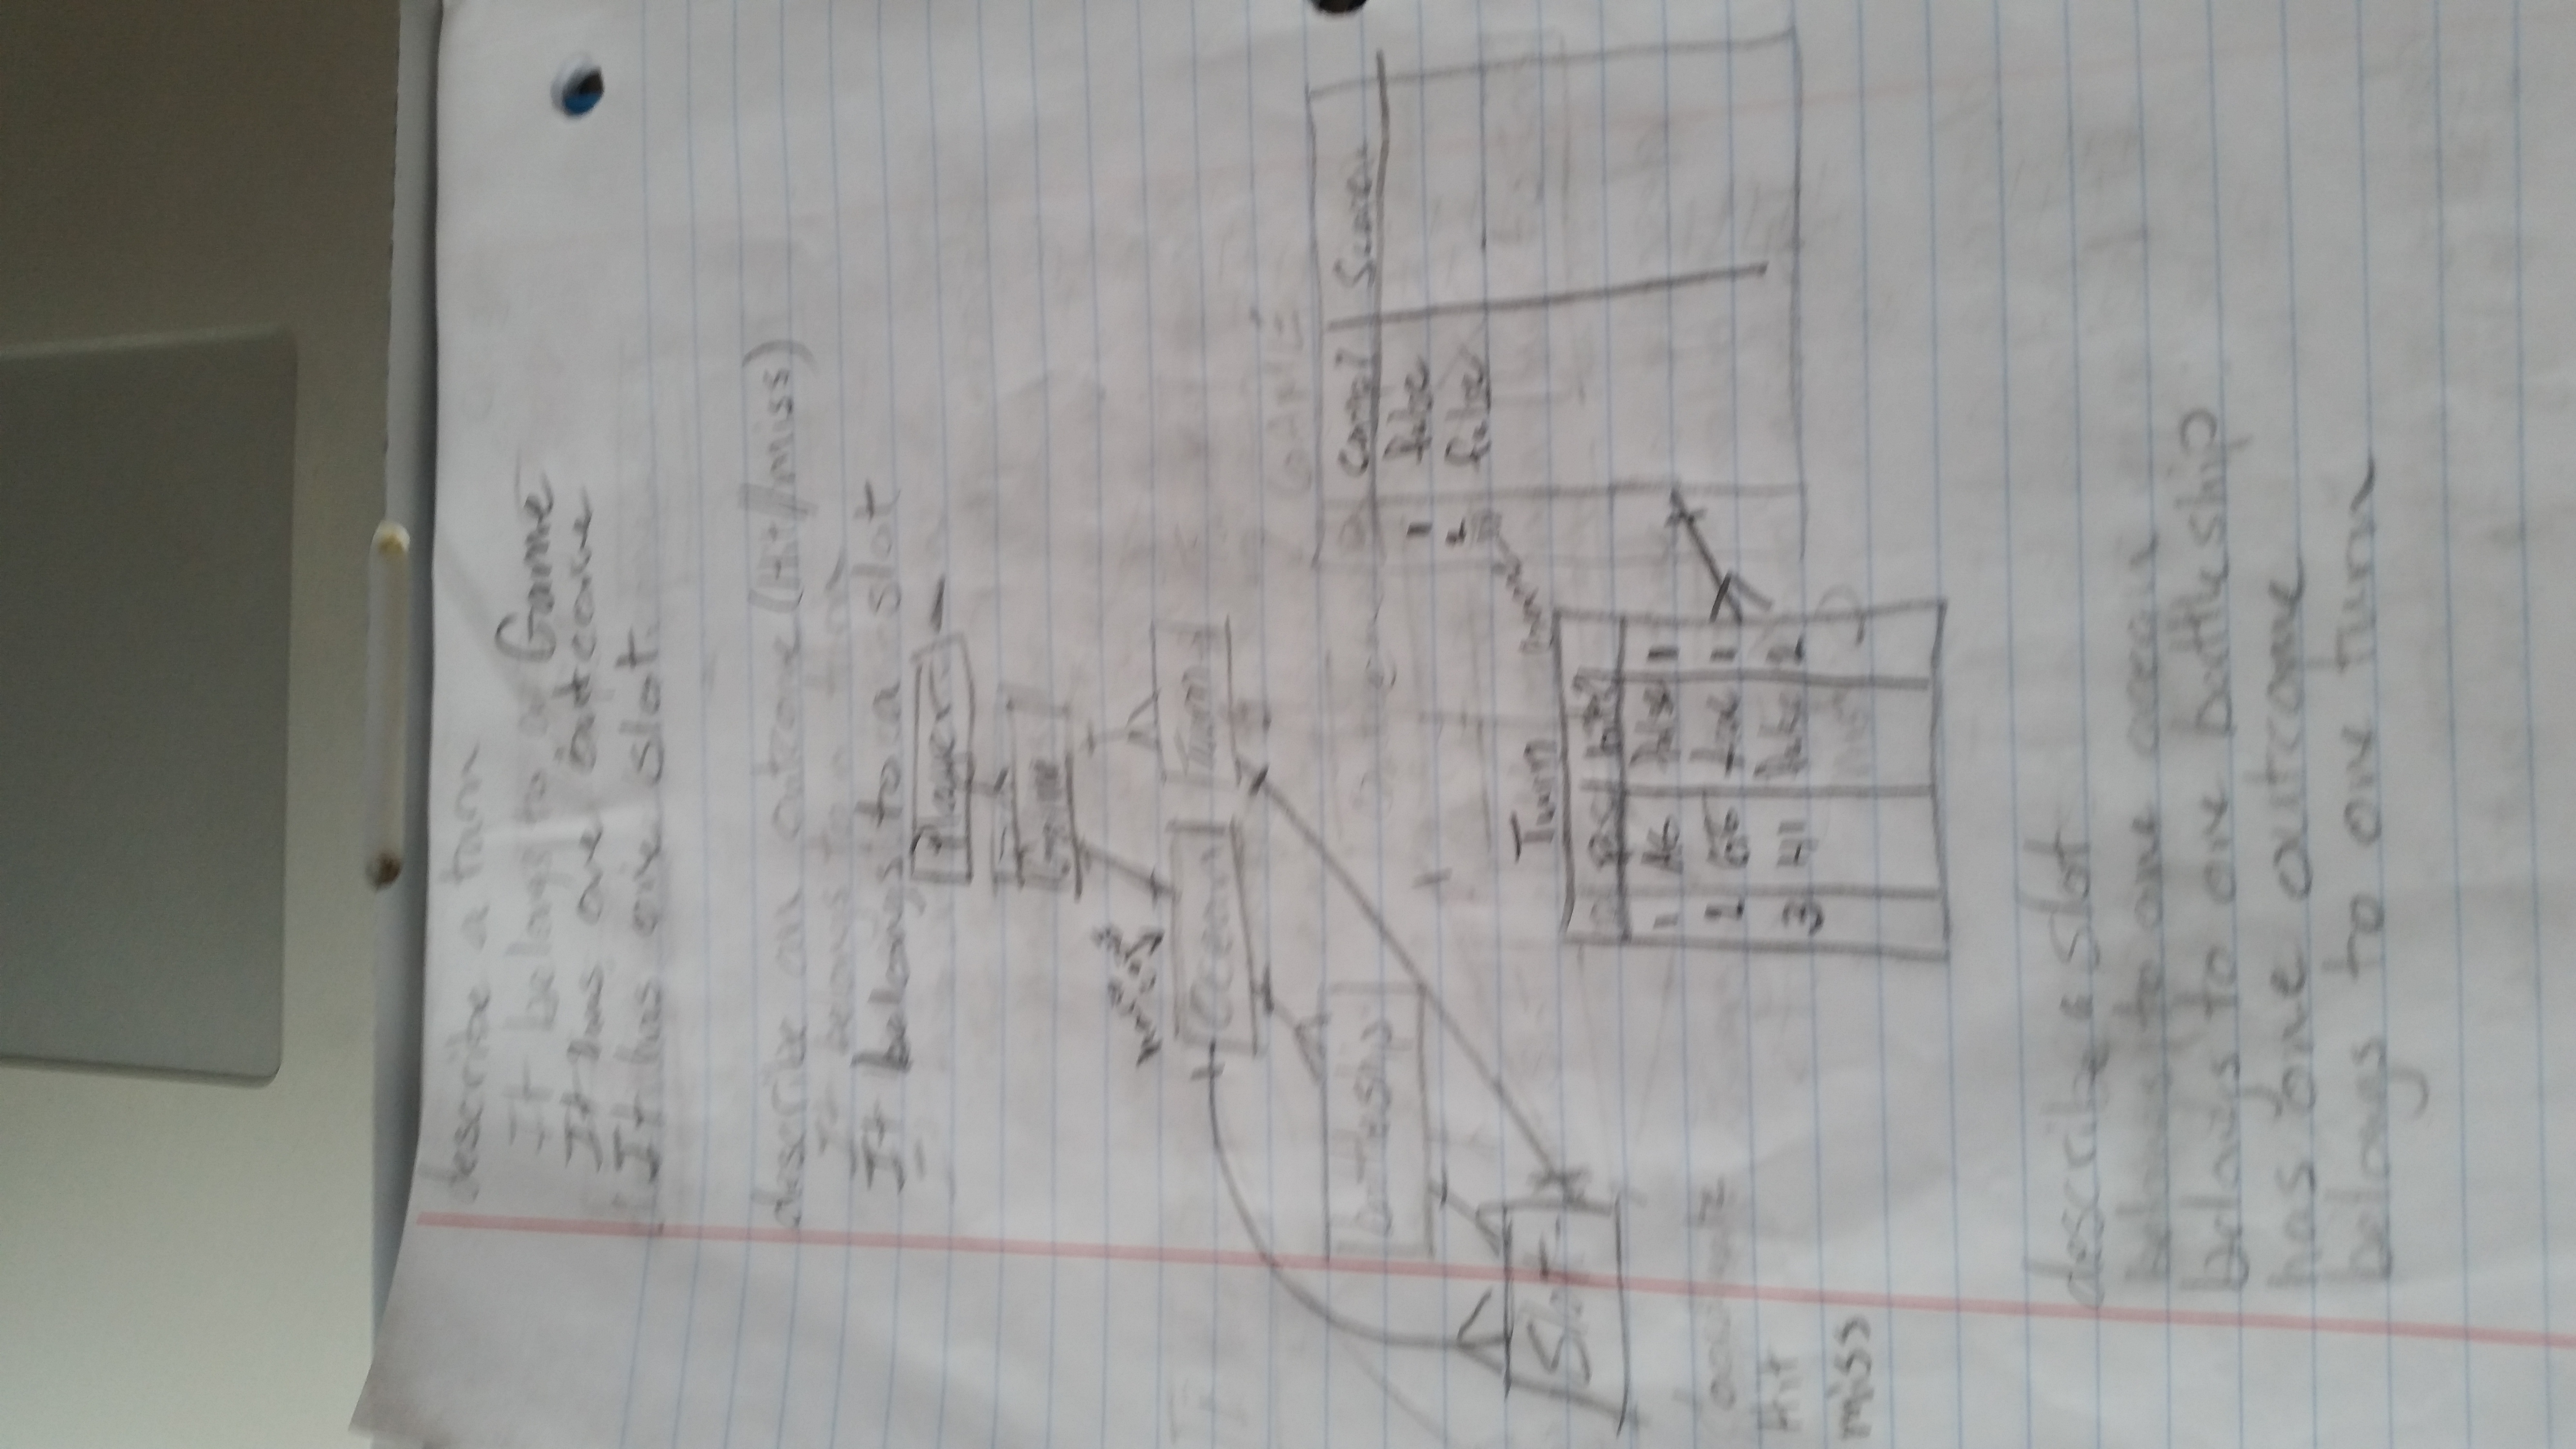 describe a turn
It belongs to a Game
It has one outcome
It has one slot
describe an outcome (Hit//miss)
It belongs to a turn
It belongs to a slot
Player
Game
Ocean
Turn
battleship
Slot
GAME
Comp?
1 false
2 false
Turn
hit?
1 A6 false 1
2 true 1
3 H1 false 2
Hit
miss
describe a slot
belongs to one ocean
belongs to one battleship
has one outcome
belongs to one turn